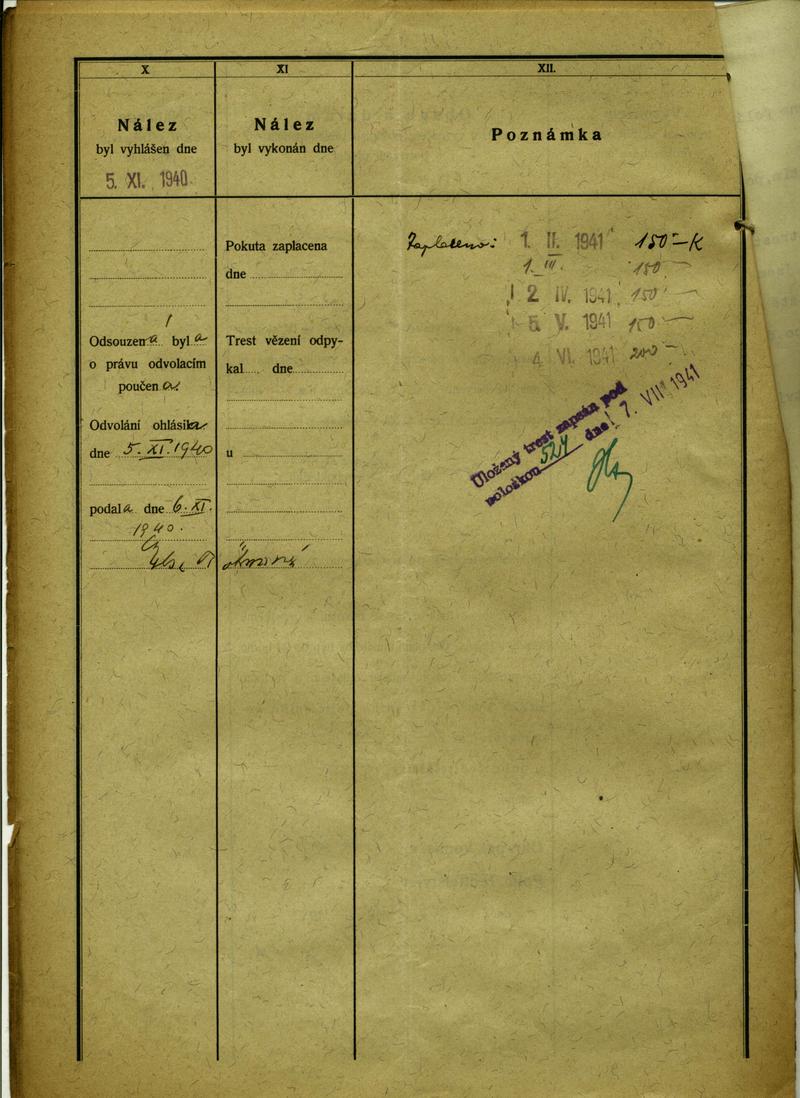 X
Nález
byl vyhlášen dne
5. XI. 1940
Odsouzena byla
o právu odvolacím
poučena
Odvolání ohlásila
dne 5. XI. 1940
podala dne 6. XI.
1940.
XI
Nález
byl vykonán dne
Pokuta zaplacena
dne
Trest vězení odpy-
kal dne
u
XII.
Poznámka
Zaplaceno: 1. II. 1941 150 - K
1. III. 150 -
2 IV. 1941 150 -
5. V. 1941 150 -
4. VI. 1941 200 -
Uložený trest zapsán pod
položkou dne 7. VII 1941